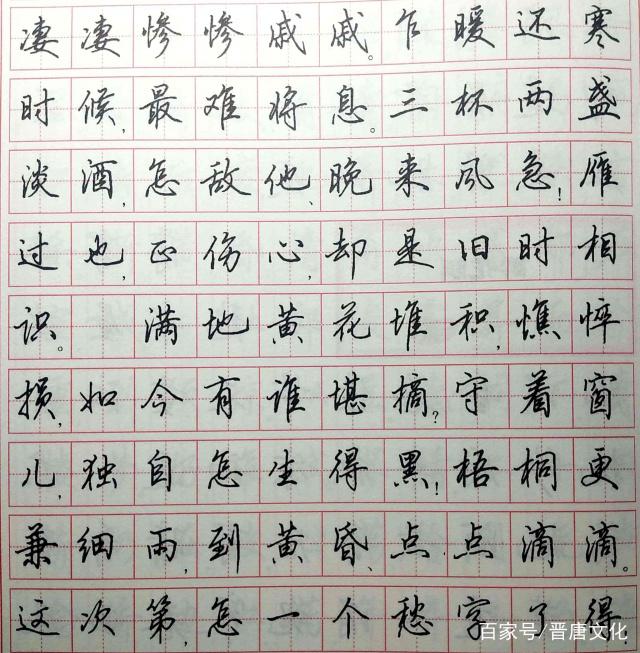 凄凄惨惨戚戚。乍暖还寒
时候,最难将息。三杯两盏
淡酒,怎敌他、晚来风急!雁
过也,正伤心,却是旧时相
识。 满地黄花堆积,憔悴
损,如今有谁堪摘?守着窗
儿,独自怎生得黑!梧桐更
兼细雨,到黄昏、点点滴滴。
这次第,怎一个愁字了得!
百家号/晋唐文化